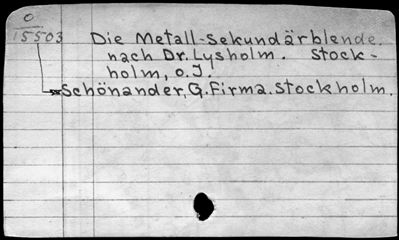 O
15503 Die Metall-Sekundärblende.
nach Dr. Lysholm. Stock-
holm, o.J.
Schönander, G. Firma. Stockholm.